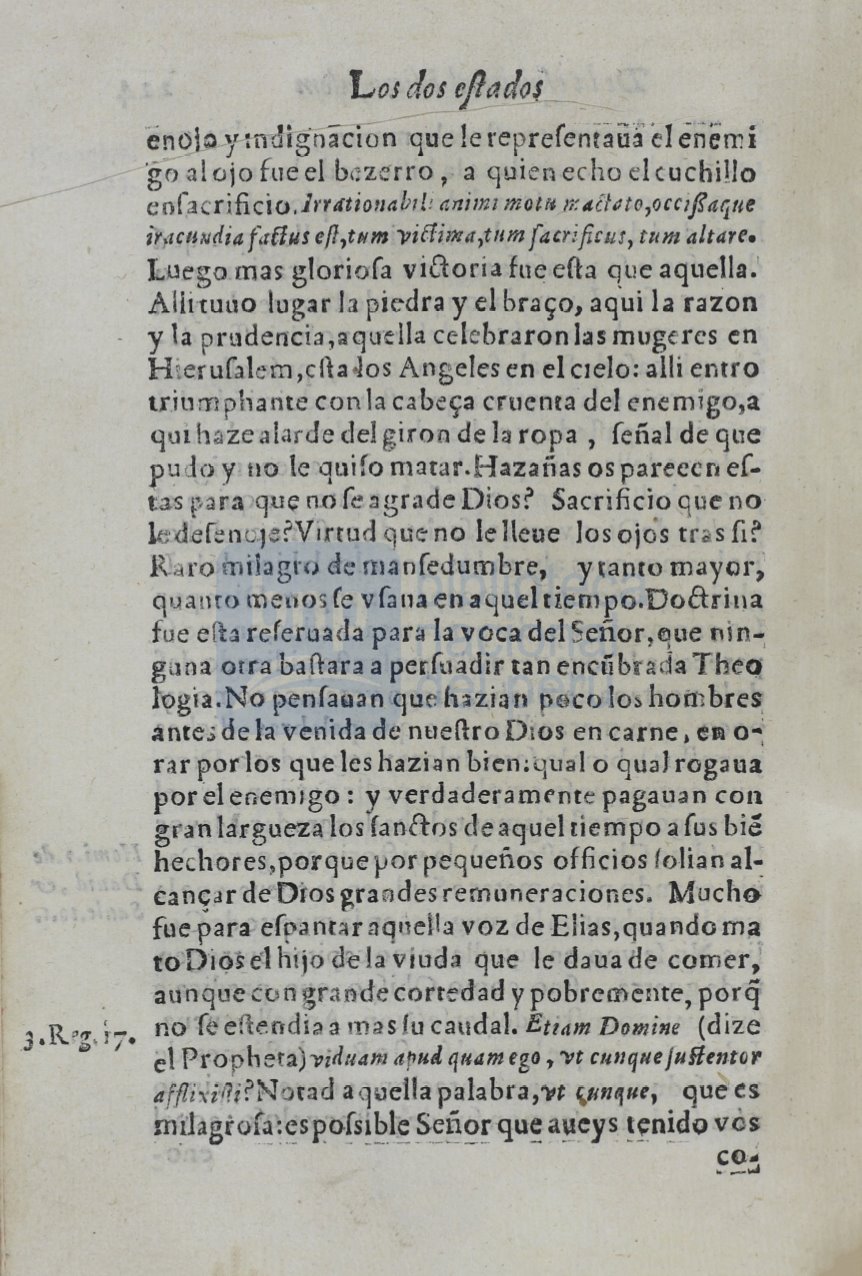 Los dos eſtados
enojo y indignacion que le repreſentaua el enemi
go al ojo fue el bezerro, a quien echo el cuchillo
en ſacrificio. Irrationabili animi motu mactato, occiſſaque
iracundia factus eſt, tum victima, tum ſacrificus, tum altare.
Luego mas glorioſa victoria fue eſta que aquella.
Alli tuuo lugar la piedra y el braço, aqui la razon
y la prudencia, aquella celebraron las mugeres en
Hieruſalem, eſta los Angeles en el cielo: alli entro
triumphante con la cabeça cruenta del enemigo, a
qui haze alarde del giron de la ropa, ſeñal de que
pudo y no le quiſo matar. Hazañas os parecen eſ-
tas para que no ſe agrade Dios? Sacrificio que no
le deſenoje? Virtud que no le lleue los ojos tras ſi?
Raro milagro de manſedumbre, y tanto mayor,
quanto menos ſe vſaua en aquel tiempo. Doctrina
fue eſta reſeruada para la voca del Señor, que nin-
guna otra baſtara a perſuadir tan encũbrada Theo
logia. No penſauan que hazian poco los hombres
antes de la venida de nueſtro Dios en carne, en o-
rar por los que les hazian bien: qual o qual rogaua
por el enemigo: y verdaderamente pagauan con
gran largueza los ſanctos de aquel tiempo a ſus biẽ
hechores, porque por pequeños officios ſolian al-
cançar de Dios grandes remuneraciones. Mucho
fue para eſpantar aquella voz de Elias, quando ma
to Dios el hijo de la viuda que le daua de comer,
aunque con grande cortedad y pobremente, porq̃
no ſe eſtendia a mas ſu caudal. Etiam Domine (dize
3. Reg. 17.
el Propheta) viduam apud quam ego, vt cunque ſuſtentor
afflixiſti? Notad aquella palabra, vt cunque, que es
milagroſa: es poſsible Señor que aueys tenido vos
co-